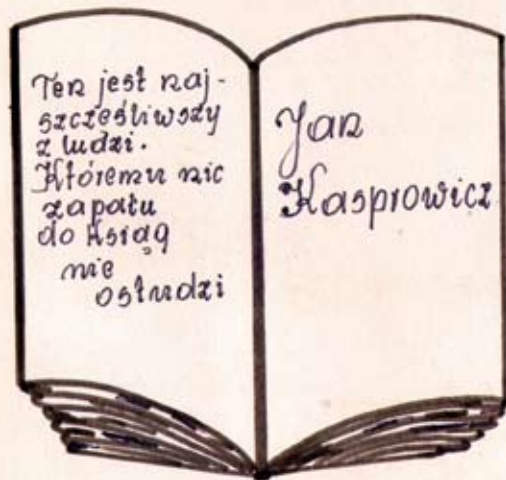 Ten jest naj-
szczęśliwszy
z ludzi.
Któremu nic
zapału
do ksiąg
nie
ostudzi
Jan
Kasprowicz